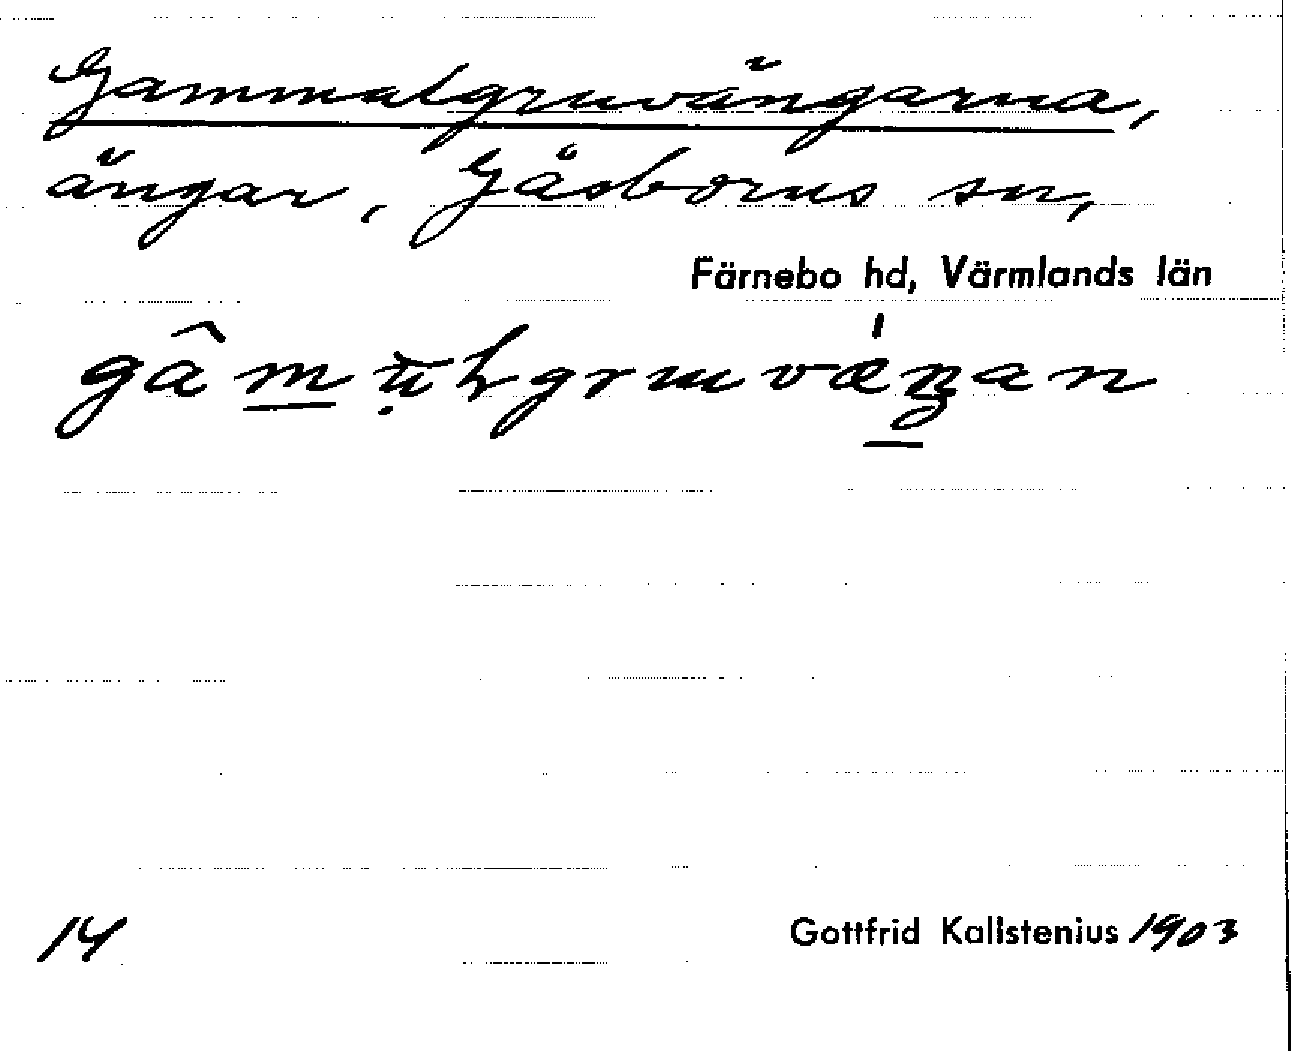 Gammalgruvängarna,
ängar, Gåsborns sn,
Färnebo hd, Värmlands län
14
Gottfrid Kallstenius 1903